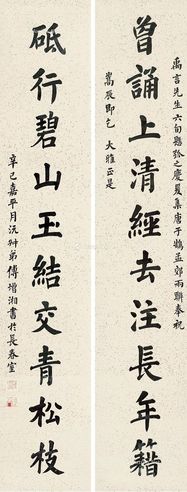 禹言先生六旬懸弧之慶夏集唐于鵠孟郊兩聯奉祝
曾誦上清經去注長年籍
嵩辰即乞 大雅正是
砥行碧山玉結交青松枝
辛巳嘉平月沅叔弟傅增湘書於長春室